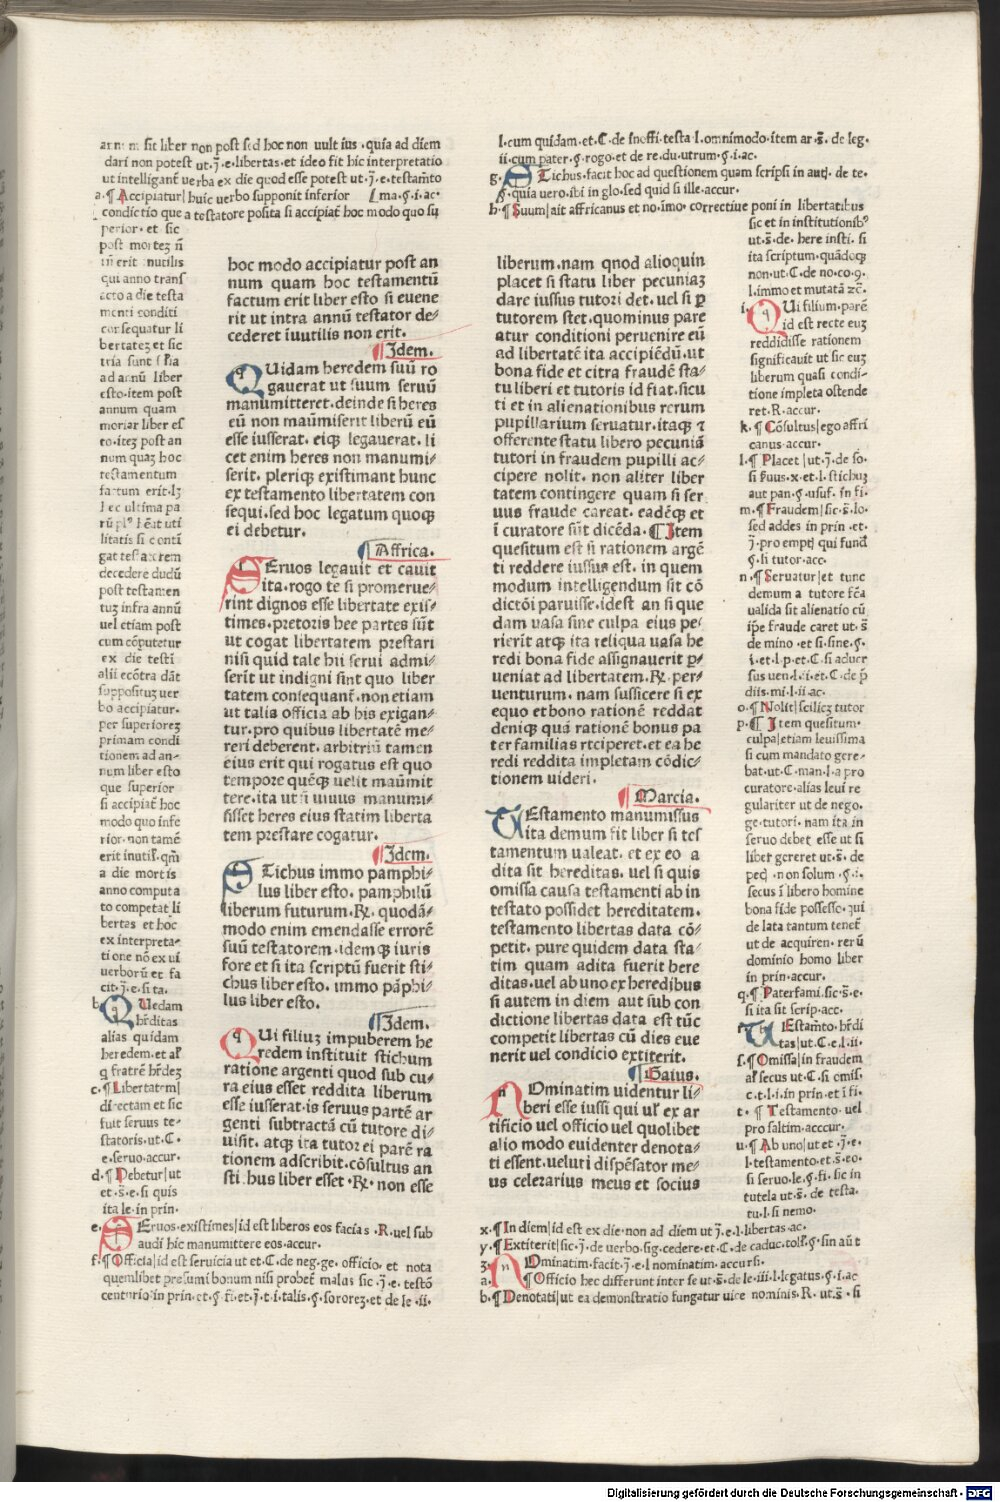 sit liber non post sed hoc non uult ius · quia ad diem
dari non potest ut · j̄ · e · libertas · et ideo fit hic interpretatio
ut intelligant̄ uerba ex die quod esse potest ut · j̄ · e · testam̄to
a · ¶ Accipiatur | huic uerbo supponit inferior [ma · §· i · ac ·
condictio que a testatore posita si accipiat̄ hoc modo quo sū
perior · et sic
post mortez n̄
erit inutilis
qui anno trans
acto a die testa
menti conditi
consequatur li
bertatez et sic
tria sunt
ad annū liber
esto · item post
annum quam
moriar liber es
to · itez post an
num quaz hoc
testamentum
factum erit · lz
hec ultima pa
litatis si conti
decedere dudū
post testamen
tuz infra annū
uel etiam post
cum cōputetur
ex die testi
alii ecōtra dāt
suppositus uer
bo accipiatur ·
per superiorez
primam condi
tionem ad an-
num liber esto
que superior
si accipiat̄ hoc
modo quo infe
rior · non tamē
erit inutil' · qm̄
a die mortis
anno computa
to competat̄ li
bertas et hoc
ex interpreta-
tione nō ex ui
uerborū et fa
cit · j̄ · e · si ita ·
b · Quedam
hr̄ditas
alias quidam
heredem · et al'
q fratrē hr̄dez
c · ¶ Libertatem |
directam et sic
fuit seruus te-
statoris · ut · C ·
e · seruo · accur ·
d · ¶ Debetur | ut
et · s̄ · e · si quis
ita le · in prin ·
e · Seruos · existimes | id est liberos eos facias · R · uel sub
audi hic manumittere eos · accur ·
f · ¶ Officia | id est seruicia ut et · C · de neg · ge · officio · et nota
quemlibet presumi bonum nisi probet̄ malus sic · j̄ · e · testō
centurio · in prin · et · § · fi · et · j̄ · ti · talis · § · sororez · et de le · ii ·
hoc modo accipiatur post an
num quam hoc testamentū
factum erit liber esto si euene
rit ut intra annū testator de⸗
cederet iuutilis non erit ·
¶ Idem ·
Quidam heredem suū ro
gauerat ut suum seruū
manumitteret · deinde si heres
eū non maūmiserit liberū eū
esse iusserat · eiqȝ legauerat · li
cet enim heres non manumi⸗
serit · pleriqȝ existimant hunc
ex testamento libertatem con
sequi · sed hoc legatum quoqȝ
ei debetur ·
¶ Affrica ·
Seruos legauit et cauit
ita · rogo te si promerue⸗
rint dignos esse libertate exis⸗
times · pretoris hee partes sūt
ut cogat libertatem prestari
nisi quid tale hii serui admi⸗
serīt ut indigni sint quo liber
tatem consequant̄ · non etiam
ut talia officia ab his exigan⸗
tur · pro quibus libertatē me⸗
reri deberent · arbitriū tamen
eius erit qui rogatus est quo
tempore quēqȝ uelit maūmit
tere · ita ut si uiuus manumi⸗
sisset heres eius statim liberta
tem prestare cogatur ·
¶ Idem ·
Stichus immo pamphi⸗
lus liber esto · pamphilū
liberum futurum · R̃ · quodā⸗
modo enim emendasse errorē
suū testatorem · idemqȝ iuris
fore et si ita scriptū fuerit sti⸗
chus liber esto · immo pāphi⸗
lus liber esto ·
¶ Idem ·
Qui filiuz impuberem he
redem instituit stichum
ratione argenti quod sub cu⸗
ra eius esset reddita liberum
esse iusserat · is seruus partē ar
genti subtractā cū tutore di⸗
uisit · atqȝ ita tutor ei parē ra
tionem adscribit · cōsultus an
stichus liber esset · R̃ · non esse
l · cum quidam · et · C · de inoffi · testa · l · omnimodo · item ar · s̄ · de leg ·
ii · cum pater · § · rogo · et de re · du · utrum · § · i · ac ·
g · Stichus · facit hoc ad questionem quam scripsi in aut̄ · de te ·
§ · quia uero · ibi in glo · sed quid si ille · accur ·
h · ¶ Suum | ait affricanus et no · īmo · correctiue poni in libertatibus
liberum · nam qnod alioquin
placet si statu liber pecuniaȝ
dare iussus tutori det · uel si ꝑ
tutorem stet · quominus pare
atur conditioni peruenire eū
ad libertatē ita accipiēdū · ut
bona fide et citra fraudē sta⸗
tu liberi et tutoris id fiat · sicu
ti et in alienationibus rerum
pupillarium seruatur · itaqȝ ⁊
offerente statu libero pecuniā
tutori in fraudem pupilli ac⸗
cipere nolit · non aliter liber
tatem contingere quam si ser
uus fraude careat · eadēqȝ et
ī curatore sūt dicēda · ¶ Item
quesitum est si rationem argē
ti reddere iussus est · in quem
modum intelligendum sit cō
dictōi paruisse · idest an si que
dam uasa sine culpa eius pe⸗
rierīt atqȝ ita reliqua uasa he
redi bona fide assignauerit ꝑ⸗
ueniat ad libertatem · R̃ · per⸗
uenturum · nam sufficere si ex
equo et bono rationē reddat
deniqȝ quā rationē bonus pa
ter familias rtciperet · et ea he
redi reddita impletam cōdic⸗
tionem uideri ·
¶ Marcia ·
Testamento manumissus
ita demum fit liber si tes
tamentum ualeat · et ex eo a
dita sit hereditas · uel si quis
omissa causa testamenti ab in
testato possidet hereditatem ·
testamento libertas data cō⸗
petit · pure quidem data sta⸗
tim quam adita fuerit here
ditas · uel ab uno ex heredibus
si autem in diem aut sub con
dictione libertas data est tūc
competit libertas cū dies eue
nerit uel condicio extiterit ·
¶ Gaius ·
Nominatim uidentur li⸗
beri esse iussi qui ul' ex ar
tificio uel officio uel quolibet
alio modo euidenter denota⸗
ti essent · ueluti dispēsator me⸗
us celerarius meus et socius
sic et in institutionib'
ut · s̄ · de · here insti · si
ita scriptum · quādoqȝ
non · ut · C · de no · co · 9 ·
l · immo et mutatā ⁊c̄ ·
i · Qui filium · parē
id est recte euȝ
reddidisse rationem
significauit ut sic euȝ
liberum quasi condi-
tione impleta ostende
ret · R · accur ·
k · ¶ Cōsultus | ego affri
canus · accur ·
l · ¶ Placet | ut · j̄ · de so ·
aut pan · § · usuf · in fi ·
m · ¶ Fraudem | sic · s̄ · lo ·
sed addes in prin · et ·
j̄ · pro empt̄ · qui fund̄
§ · si tutor · acc ·
n · ¶ Seruatur | et tunc
demum a tutore fc̄a
ualida sit alienatio cū
ip̄e fraude caret ut · s̄ ·
de mino · et si · sine · § ·
i · et · l · p · et · C · si aduer
diis · mi · l · ii · ac ·
o · ¶ Nolit | scilicȝ tutor
p · ¶ Item quesitum ·
culpa | etiam leuissima
si cum mandato gere-
bat · ut · C · man · l · a pro
curatore · alias leui re
gulariter ut de nego ·
ge · tutori · nam ita in
seruo debet esse ut si
libet gereret ut · s̄ · de
non solum · § · i ·
secus ī libero homine
bona fide possesso · qui
de lata tantum tenet̄
ut de acquiren · rerū
dominio homo liber
in prin · accur ·
q · ¶ Paterfami · sic · s̄ · e ·
si ita sit scrip · acc ·
r · Testam̄to · hr̄di
tas | ut · C · e · l · ii ·
s · ¶ Omissa | in fraudem
al' secus ut · C · si omis ·
c · t · l · i · in prin · et ī fi ·
t · ¶ Testamento · uel
pro saltim · acccur ·
u · ¶ Ab uno | ut et · j̄ · e ·
l · testamento · et · s̄ · eo ·
si seruo · le · § · fi · sic in
tutela ut · s̄ · de testa ·
tu · l · si nemo ·
x · ¶ In diem | id est ex die · non ad diem ut j̄ · e · l · libertas · ac ·
y · ¶ Extiterit | sic · j̄ · de uerbo · sig · cedere · et · C · de caduc · tol' · § · sin aūt
z · Nominatim · facit · j̄ · e · l nominatim · accursi ·
a · ¶ Officio hec differunt inter se ut · s̄ · de le · iii · l · legatus · § · i · ac
b · ¶ Denotati | ut ea demonstratio fungatur uice nominis · R · ut · s̄ · si
Digitalisierung gefördert durch die Deutsche Forschungsgemeinschaft - DFG